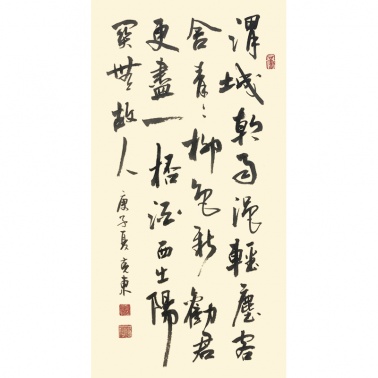 渭城朝雨浥輕塵客
舍青〻柳色新勸君
更盡一桮酒西出陽
關無故人
庚子夏東